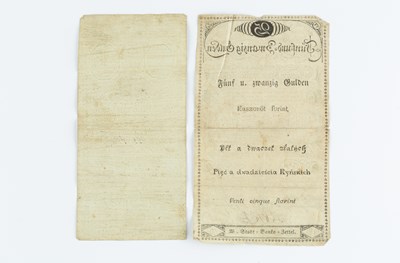 25
Fünf und Zwanzig Gulden
Fünf u. zwanzig Gulden
Huszonöt forint
Pět a dwacet zlatych
Pięć a dwadzieścia Ryńskich
Venti cinque fiorini
W. Stadt-Banko-Zettel.